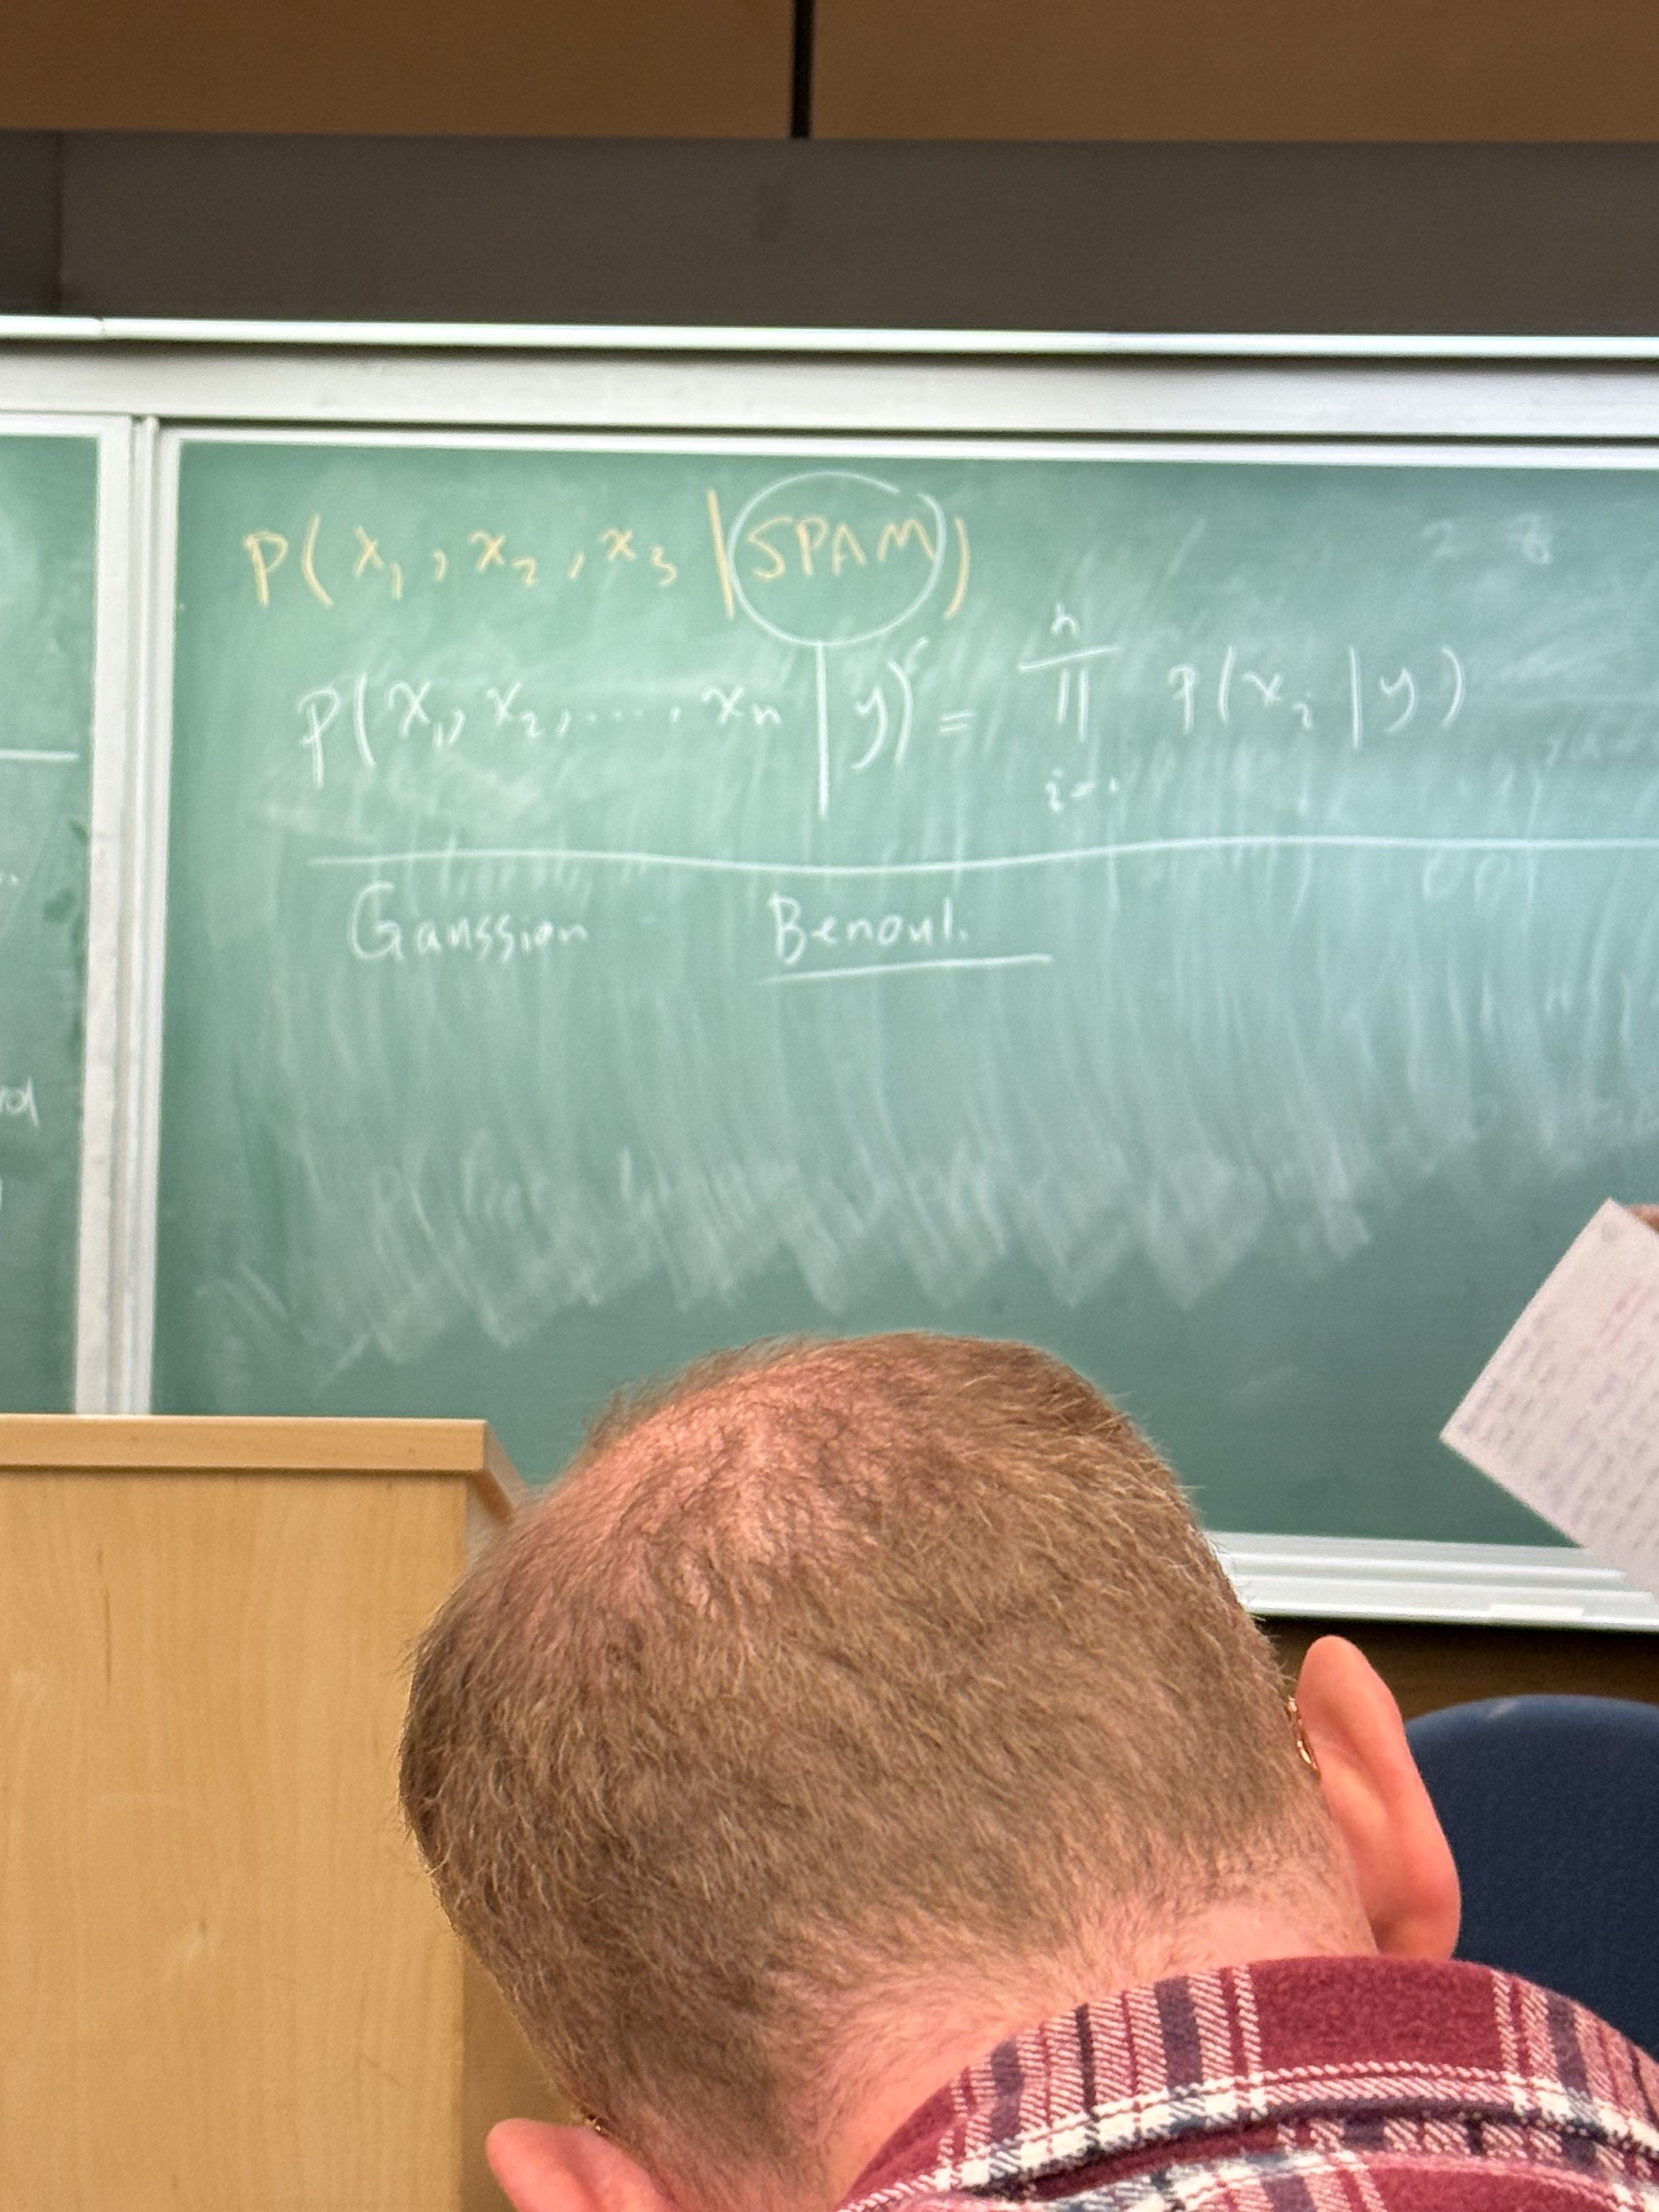 P(x₁, x₂, x₃ | SPAM)
P(x₁, x₂, ...., xₙ | y) = ∏ᵢ₌₁ⁿ P(xᵢ | y)
Gaussian Benouli